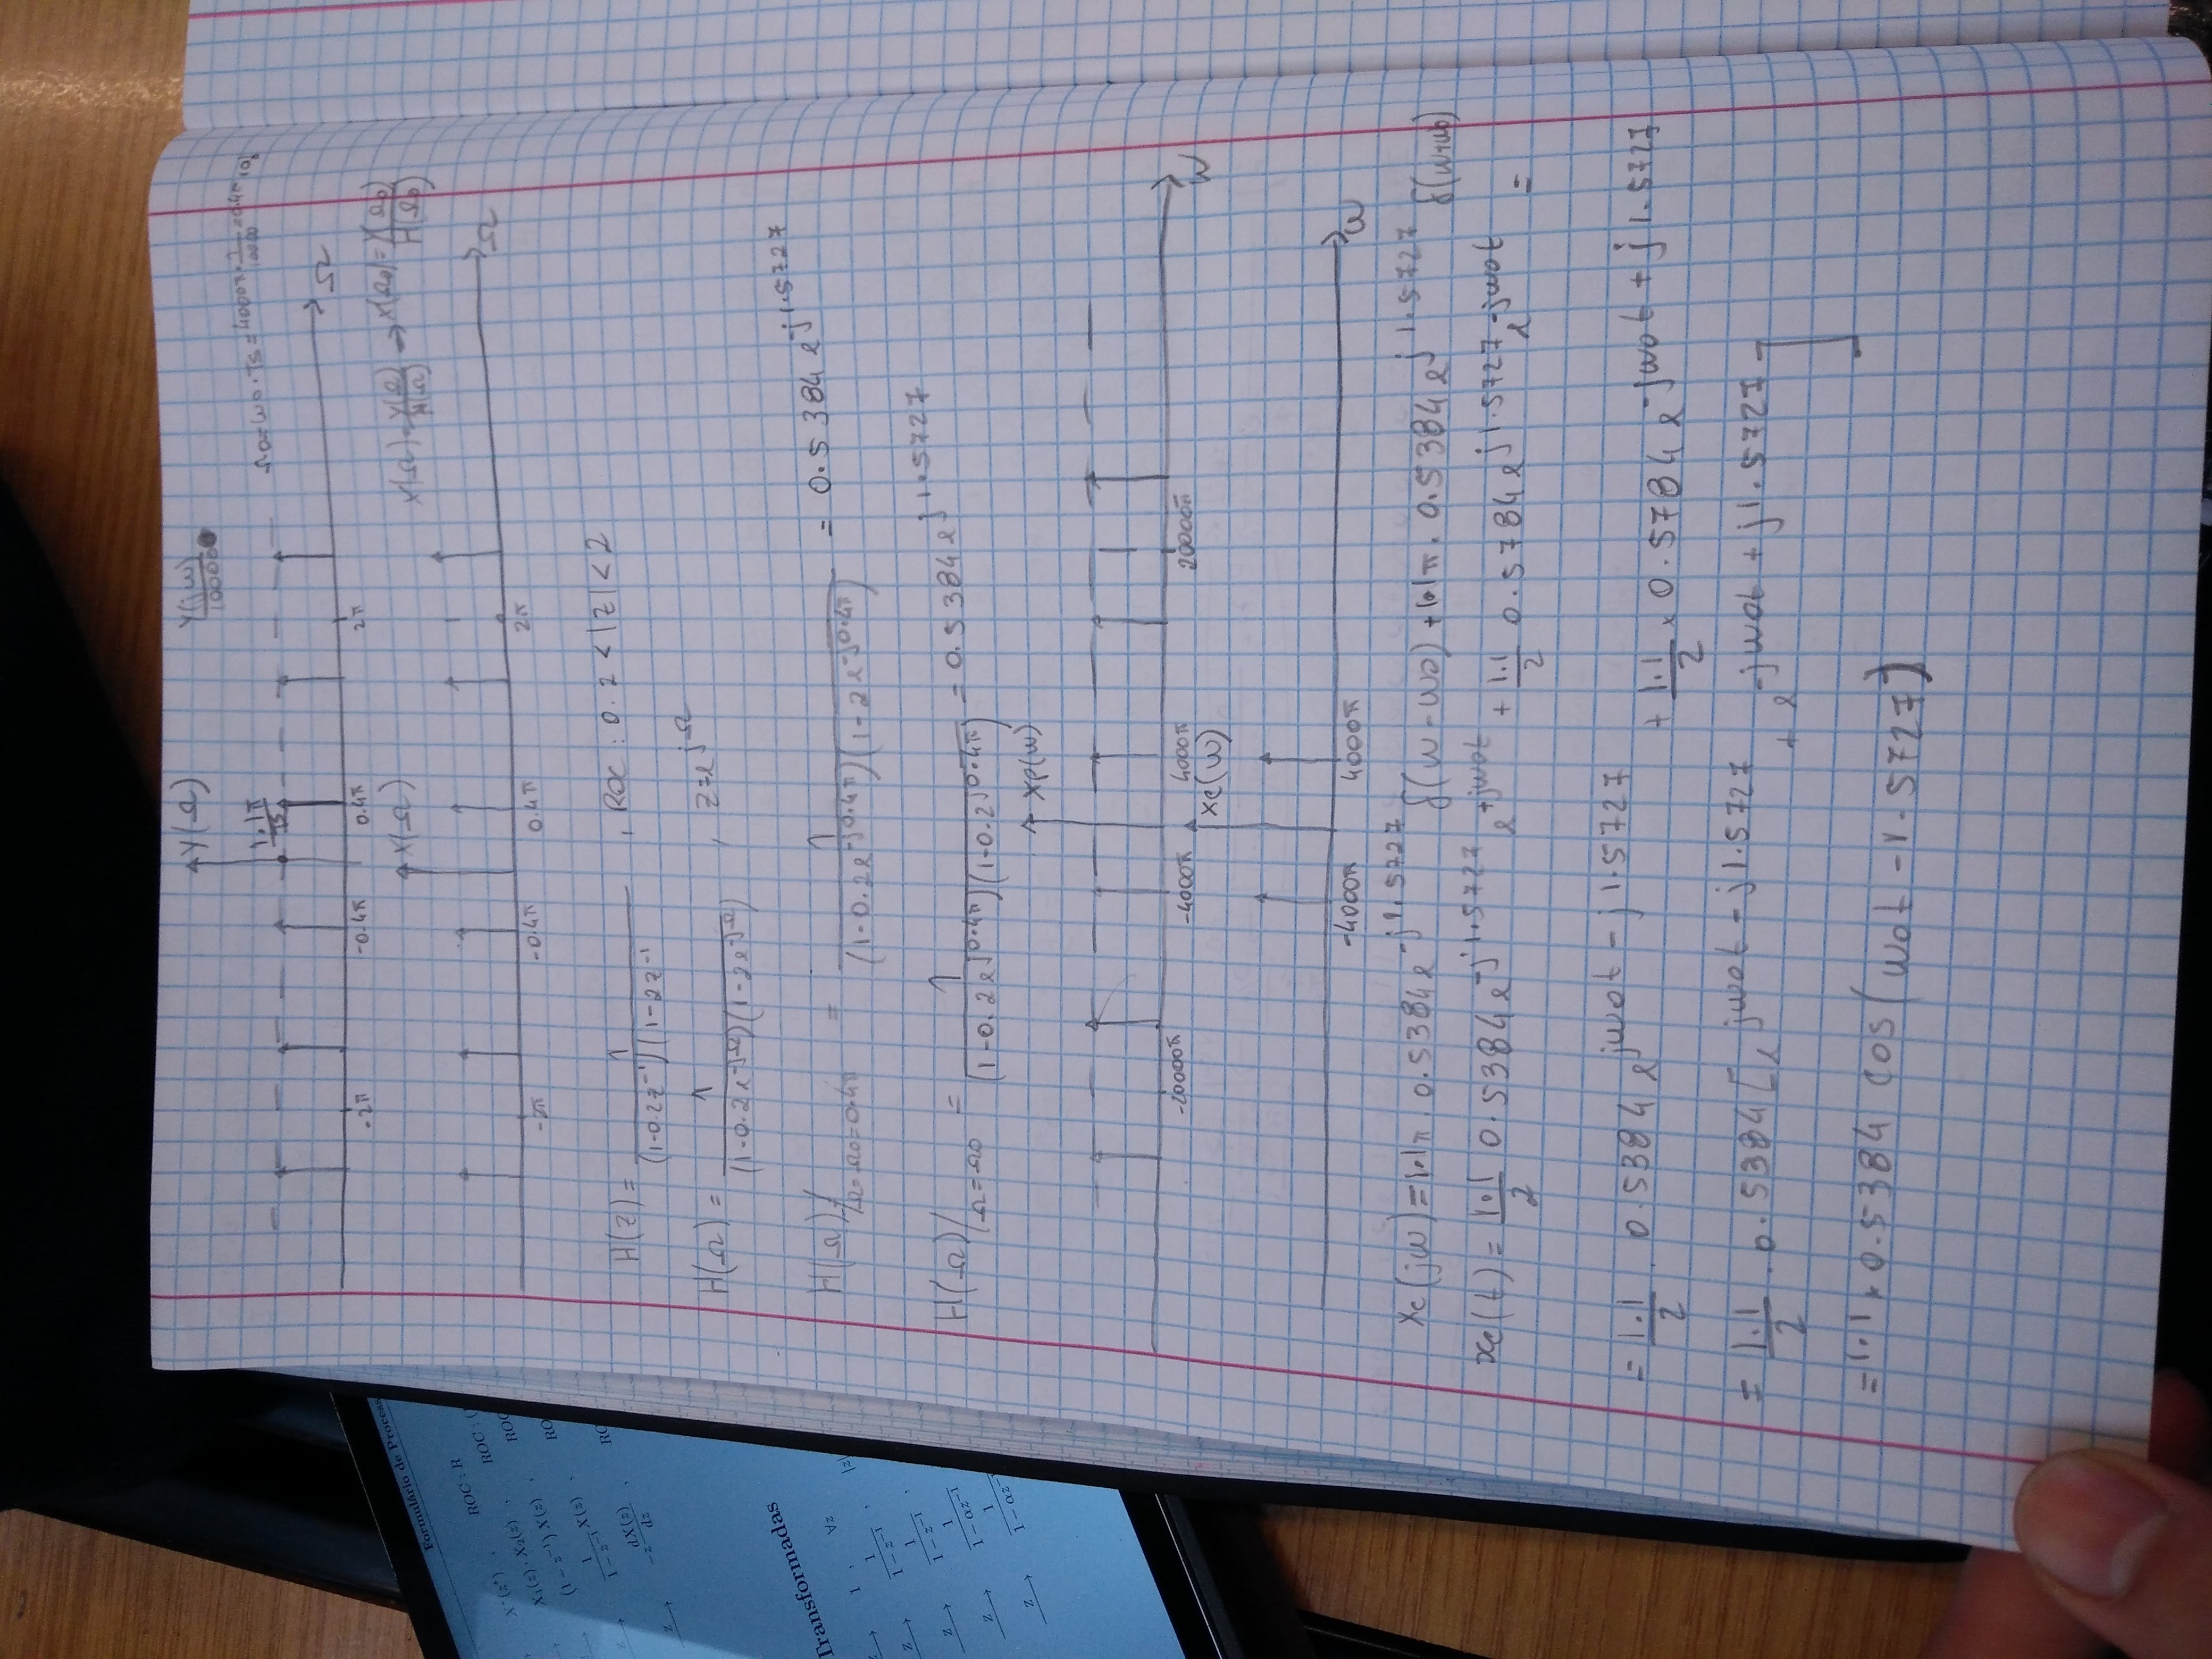 Y(Ω)
Y(jω)/10000
Ω0 = ω0 . Ts = 4000π × 1/10000 = 0.4π
1.1π/Ts
Ω
-2π -0.4π 0.4π 2π
X(Ω)
X(Ω) = Y(Ω)/H(Ω) → X(Ω0) = Y(Ω0)/H(Ω0)
Ω
-2π -0.4π 0.4π 2π
H(z) = 1/(1-0.2z^-1)(1-2z^-1 , ROC: 0.2 < |z| < 2
H(Ω) = 1/(1-0.2e^-jΩ)(1-2e^-jΩ) , z=e^jΩ
H(Ω)/Ω=Ω0=0.4π = 1/(1-0.2e^-j0.4π)(1-2e^-j0.4π) = 0.5384e^-j1.5727
H(Ω)/Ω=-Ω0 = 1/(1-0.2e^j0.4π)(1-0.2^j0.4π) = 0.5384e^j1.5727
Xp(ω)
-20000π -4000π 4000π 20000π
ω
Xc(ω)
-4000π 4000π
ω
Xc(jω) = 1.1π . 0.5384e^-j1.5727 δ(ω-ω0) + 1.1π . 0.5384e^j1.5727 δ(ω+ω0)
xc(t) = 1.1/2 0.5384e^-j1.5727 e^+jω0t + 1.1/2 0.5784e^j1.5727 e^-jω0t =
= 1.1/2 . 0.5384e^jω0t - j1.5727 + 1.1/2 × 0.5784e^-jω0t + j1.5727
= 1.1/2 . 0.5384[e^jω0t - j1.5727 + e^-jω0t + j1.5727]
= 1.1 × 0.5384 cos(ω0t - 1.5727)
Formulário de Process
ROC : R
X*(z*) , ROC : (
X1(z) . X2(z) , ROC
(1 − z^-1) X(z) , RO
1/(1 − z^-1) X(z) , RO
-z dX(z)/dz , RO
Transformadas
1 , ∀z
1/(1 − z^-1) , |z|
1/(1 − z^-1) ,
1/(1 − αz^-1)
1/(1 − αz^-1